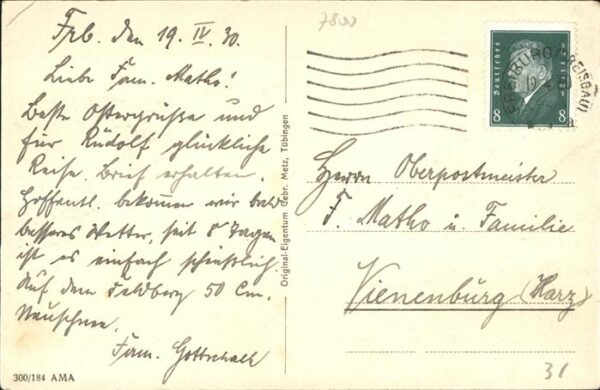 Frb. den 19. IV. 30.
Liebe Fam. Matho!
Beste Ostergrüße und
für Rudolf glückliche
Reise. Brief erhalten.
Hoffentl. bekommen wir bald
besseres Wetter, seit 8 Tagen
ist es einfach scheußlich.
Auf dem Feldberg 50 Cm.
Neuschnee.
Fam. Gottschalk
300/184 AMA
Original-Eigentum Gebr. Metz, Tübingen
7800
Deutsches Reich
8 8
FREIBURG (BREISGAU)
Herrn Oberpostmeister
F. Matho u. Familie
Vienenburg (Harz)
31